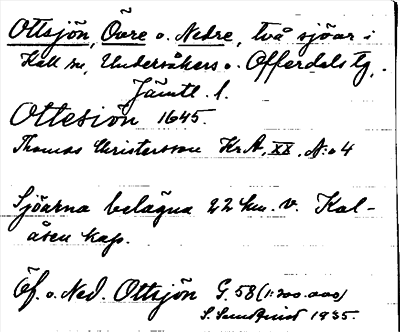 Ottsjön, Övre o. Nedre, två sjöar i
Kall sn, Undersåkers o. Offerdals tg,
Jämtl. l.
Ottesiön 1645.
Thomas Christersson Kr.A. XX. N:o 4
Sjöarna belägna 22 km. v. Kal-
åsen kap.
Öf. o. Ned. Ottsjön G. 58 (1:200.000)
S. 1935.